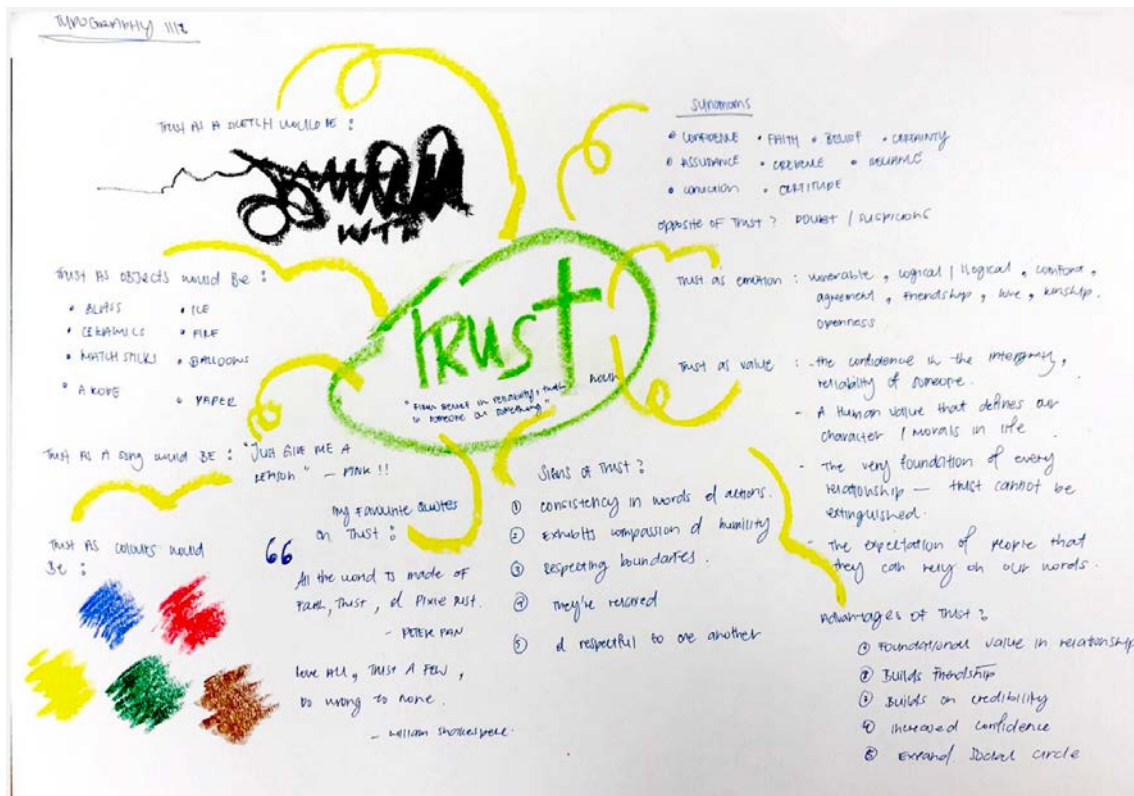 TYPOGRAPHY
TRUST AS A SKETCH WOULD BE :
WTF
TRUST AS OBJECTS WOULD BE :
• GLASS • ICE
• CERAMICS • FIRE
• MATCH STICKS • BALLOONS
• A ROPE • PAPER
TRUST AS A SONG WOULD BE : "JUST GIVE ME A
REASON" – PINK !!
TRUST AS COLOURS would
Be :
My FAVOURITE QUOTES
on TRUST :
66
All the world is made of
Faith, Trust, & Pixie Dust.
– PETER PAN
Love All, Trust A Few,
Do wrong to none.
– William Shakespere.
TRUST
noun
"Firm Belief in reliability, truth
in someone or something"
Signs of Trust ?
① consistency in words & actions.
② Exhibits compassion & humility
③ Respecting boundaries.
④ They're relaxed
⑤ & respectful to one another
• CONFIDENCE • FAITH • BELIEF • CERTAINTY
• ASSURANCE • CREDENCE • RELIANCE
• CONVICTION • CERTITUDE
Opposite of Trust? DOUBT / SUSPICIONS
Trust as emotion : vunerable, logical / illogical, comfort,
agreement, Friendship, love, kinship.
openness
Trust as value : - the confidence in the intergrity,
reliability of someone.
- A Human value that defines our
character / Morals in life
- The very foundation of every
relationship — trust cannot be
extinguished.
- The expectation of people that
they can rely on our words.
Advantages of Trust ?
① Foundational value in relationship
② Builds Friendship
③ Builds on credibility
④ Increased confidence
⑤ Expand Social circle